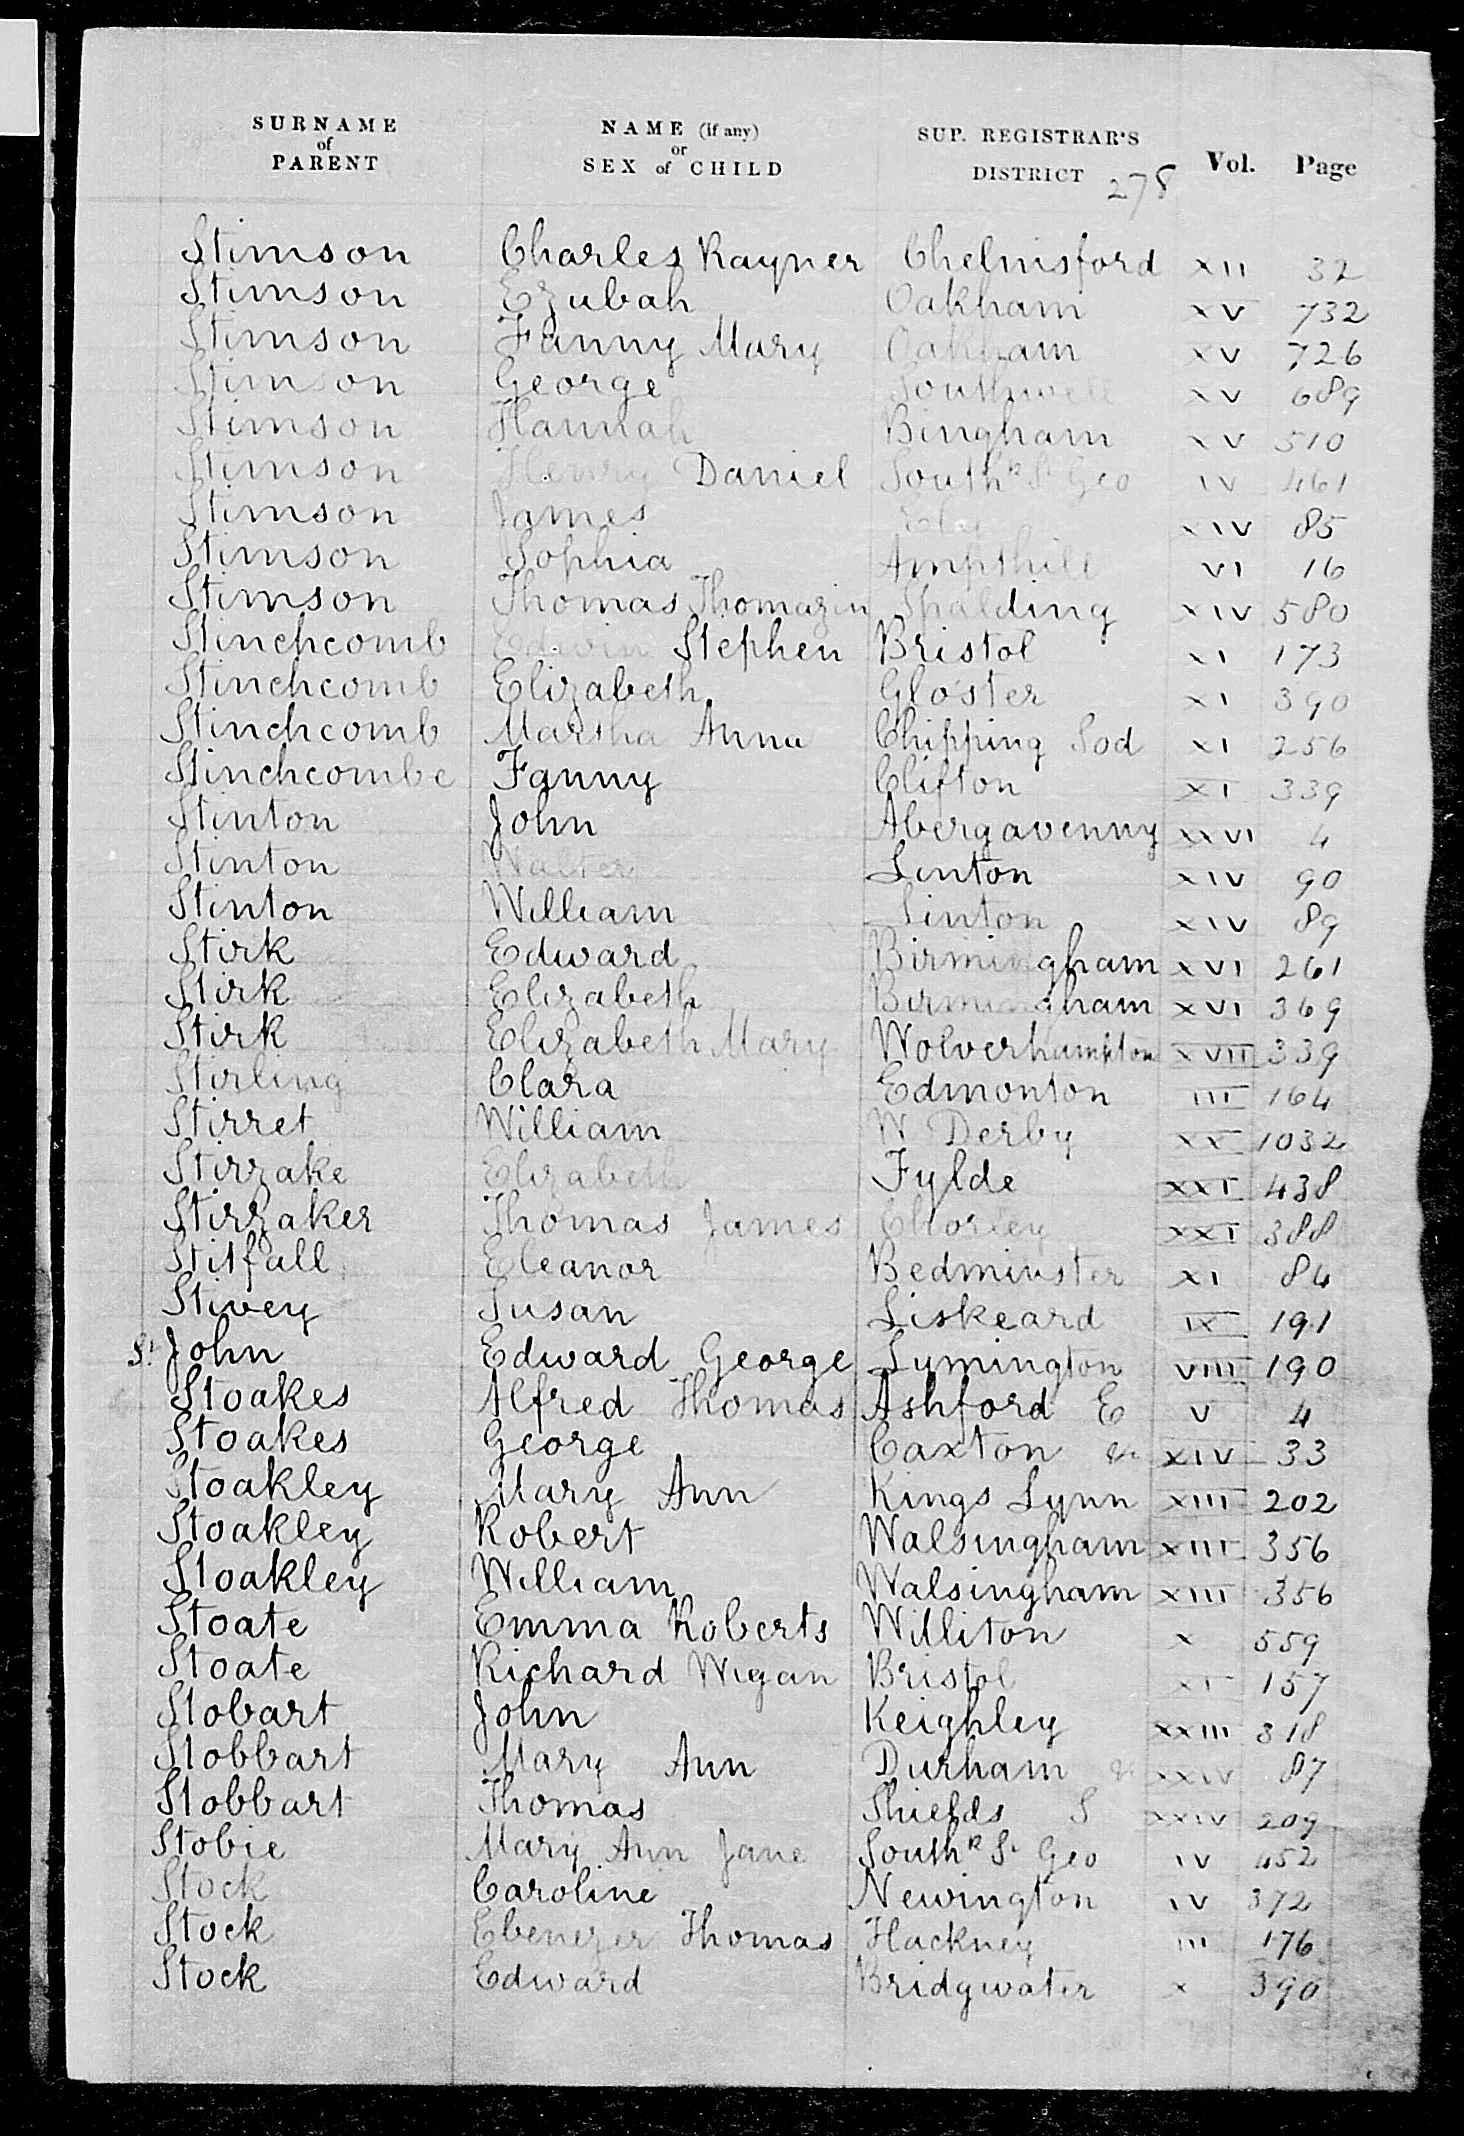 SURNAME of PARENT NAME (if any) or SEX of CHILD SUP. REGISTRAR'S DISTRICT Vol. Page
278
Stimson Charles Rayner Chelmsford XII 32
Stimson Ezubah Oakham XV 732
Stimson Fanny Mary Oakham XV 726
Stimson George Southwell XV 689
Stimson Hannah Bingham XV 510
Stimson Henry Daniel Southk St Geo IV 461
Stimson James Ely XIV 85
Stimson Sophia Ampthill VI 16
Stimson Thomas Thomazin Spalding XIV 580
Stinchcomb Edwin Stephen Bristol XI 173
Stinchcomb Elizabeth Glo'ster XI 390
Stinchcomb Martha Anna Chipping Sod XI 256
Stinchcombe Fanny Clifton XI 339
Stinton John Abergavenny XXVI 4
Stinton Walter Linton XIV 90
Stinton William Linton XIV 89
Stirk Edward Birmingham XVI 261
Stirk Elizabeth Birmingham XVI 369
Stirk Elizabeth Mary Wolverhampton XVII 339
Stirling Clara Edmonton III 164
Stirret William W Derby XX 1032
Stirzake Elizabeth Fylde XXI 438
Stirzaker Thomas James Chorley XXI 388
Stitfall Eleanor Bedminster XI 84
Stivey Susan Liskeard IX 191
St John Edward George Lymington VIII 190
Stoakes Alfred Thomas Ashford E V 4
Stoakes George Caxton &c XIV 33
Stoakley Mary Ann Kings Lynn XIII 202
Stoakley Robert Walsingham XIII 356
Stoakley William Walsingham XIII 356
Stoate Emma Roberts Williton X 559
Stoate Richard Wigan Bristol XI 157
Stobart John Keighley XXIII 318
Stobbart Mary Ann Durham XXIV 87
Stobbart Thomas Shields S XXIV 209
Stobie Mary Ann Jane Southk St Geo IV 452
Stock Caroline Newington IV 372
Stock Ebenezer Thomas Hackney III 176
Stock Edward Bridgwater X 390